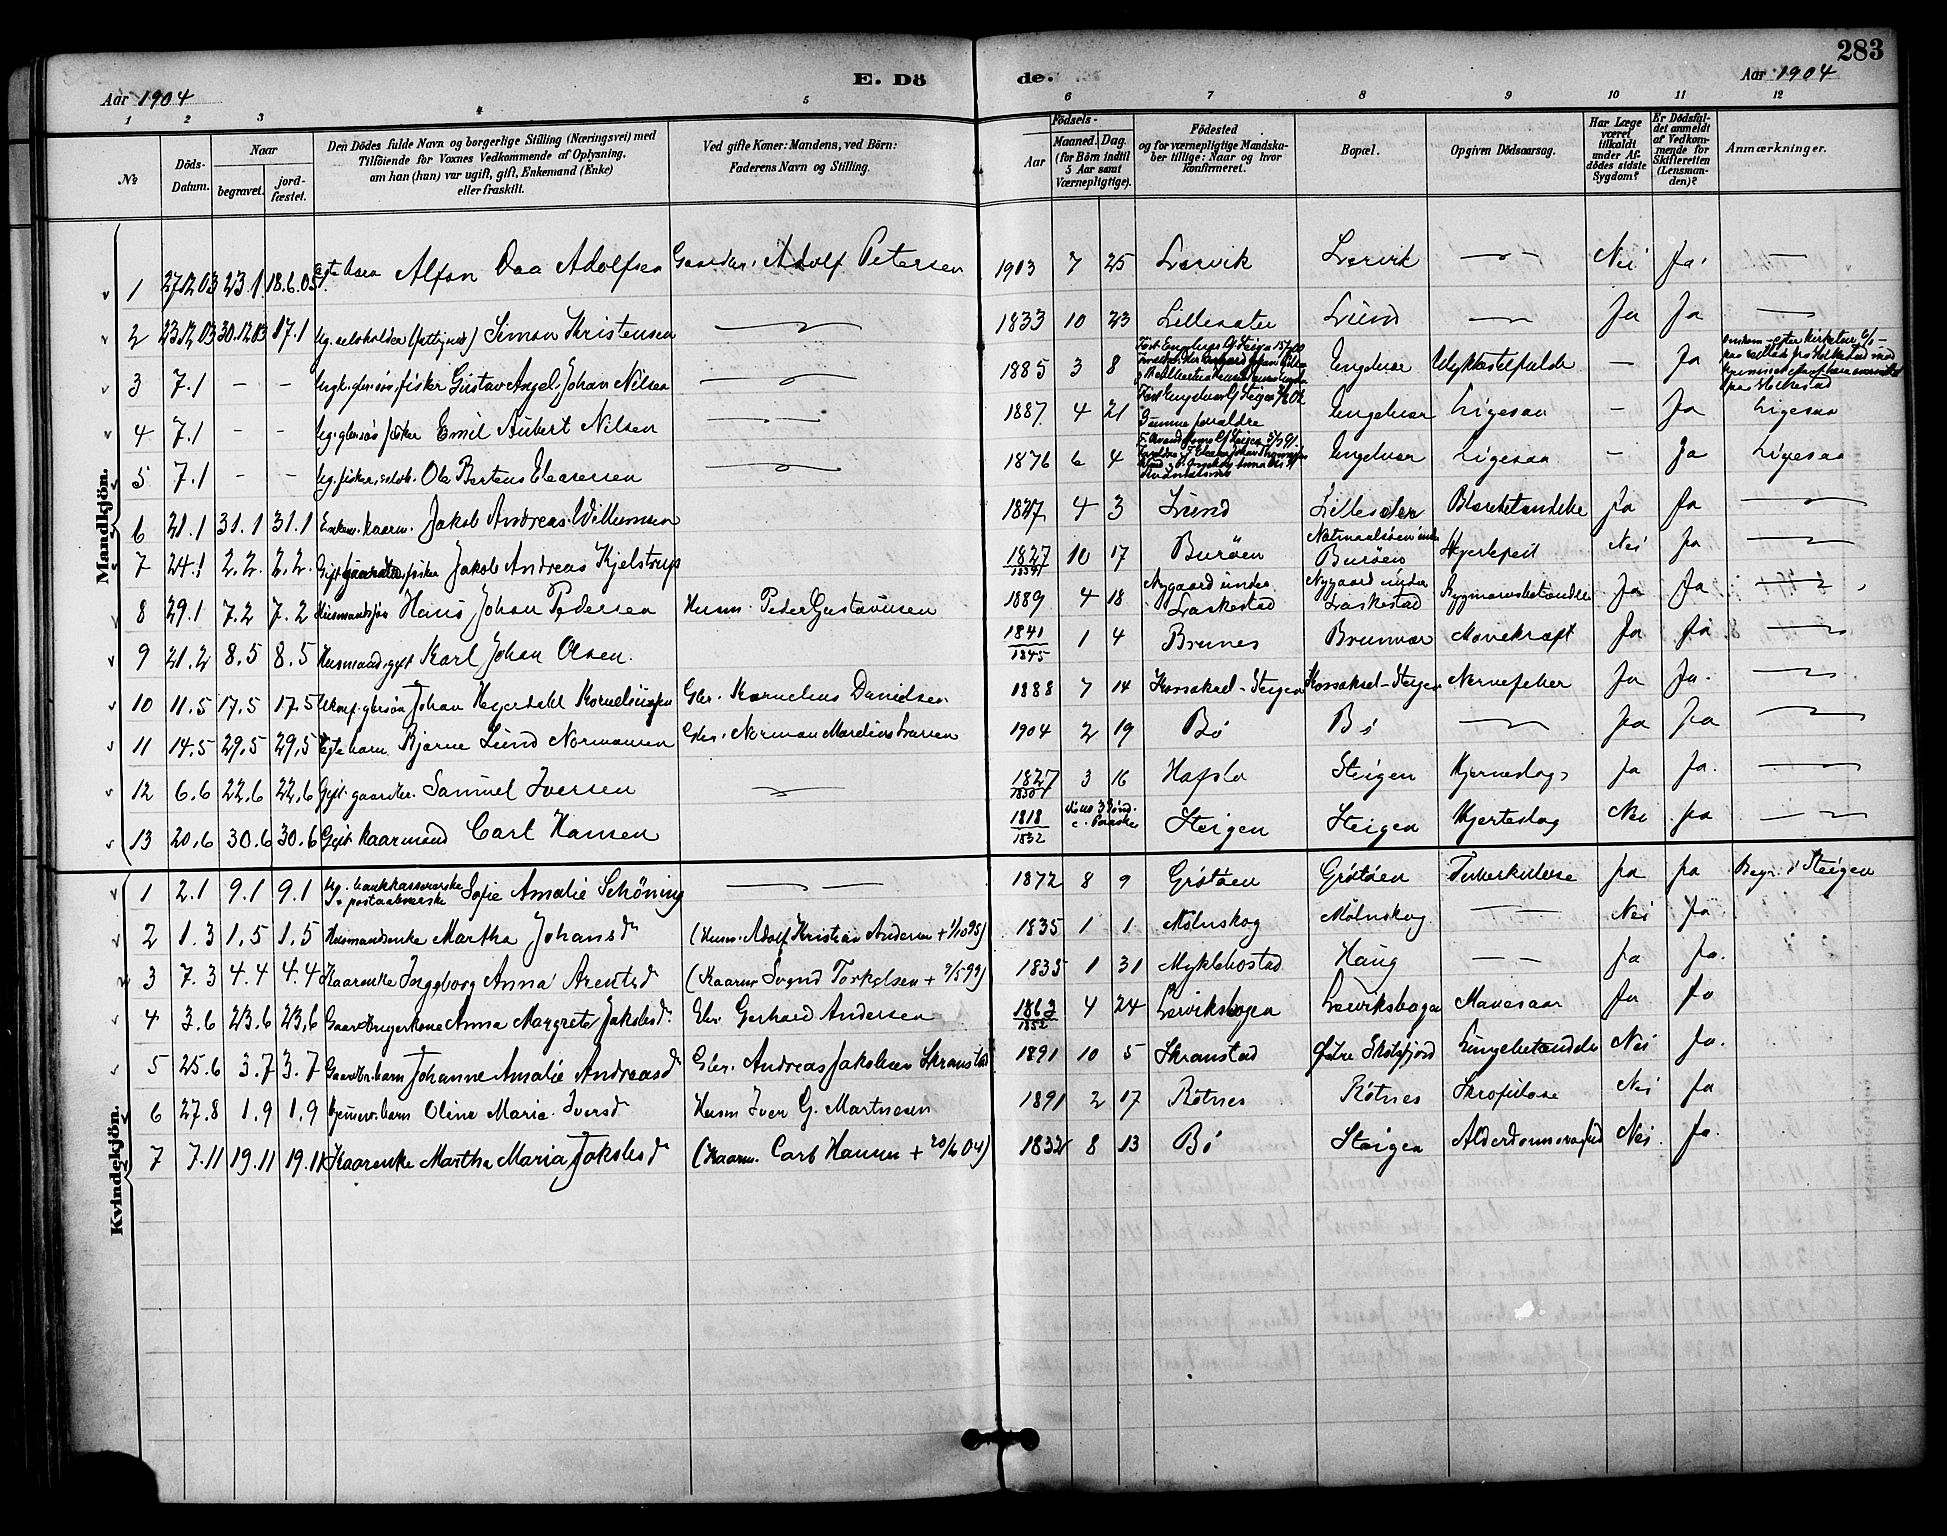 283
E. Dö de.
Aar 1904
Aar 1904
1 2 3 4 5 6 7 8 9 10 11 12
№
Döds-Datum.
Naar
begravet.
jordfæstet.
Den Dödes fulde Navn og borgerlige Stilling (Næringsvei) med
Tilföiende for Voxnes Vedkommende af Oplysning,
om han (hun) var ugift, gift, Enkemand (Enke)
eller fraskilt.
Ved gifte Koner: Mandens, ved Börn:
Faderens Navn og Stilling.
Födsels-
Aar
Maaned. Dag.
(for Börn indtil
5 Aar samt
Værnepligtige).
Födested
og for værnepligtige Mandska-
ber tillige: Naar og hvor
konfirmeret.
Bopæl.
Opgiven Dödsaarsag.
Har Læge
været
tilkaldt
under Af-
dödes sidste
Sygdom?
Er Dödsfal-
det anmeldt
af Vedkom-
mende for
Skifteretten
(Lensman-
den)?
Anmærkninger.
Mandkjön.
1 27.12.03 23.1 18.6.05 Egte barn Alfon Daa Adolfsen Gaardbr. Adolf Petersen 1903 7 25 Lervik Lervik — Nei Ja —
2 23.12.03 30.12.03 17.1 Simon Kristensen — 1833 10 23 Lillesæter Lund — Ja Ja —
3 7.1 - - fisker Gustav Angel Johan Nilsen — 1885 3 8 Engelvær Ulykkestilfælde — Ja
4 7.1 - - Ug. gbrsøn fisker Emil Aubert Nilsen — 1887 4 21 Samme forældre Engelvær Ligesaa — Ja Ligesaa
5 7.1 - - Ug. fisker, selvh. Ole Bertens Eleasersen — 1876 6 4 Engelvær Ligesaa — Ja Ligesaa
6 21.1 31.1 31.1 Enkem. kaarm. Jakob Andreas Willumsen 1827 4 3 Lund Lillesæter Blærebetændelse Ja Ja —
7 24.1 2.2. 2.2. Gift fisker Jakob Andreas Kjelstrup 1827 10 17 Burøen Burøen Hjertefeil Nei Ja —
8 29.1 7.2 7.2 Husmandssøn Hans Johan Pedersen Husm. Peder Gustavsen 1889 4 18 Nygaard under Laskestad Nygaard under Laskestad Rygmarvsbetændelse Ja Ja —
9 21.2 8.5 8.5 Husmand, gift Karl Johan Olsen. 1841 1845 1 4 Brunes Brunvær Mavekræft Ja Ja —
10 11.5 17.5 17.5 Ukonf. gbrsøn Johan Hegerdahl Korneliussen Gbr. Kornelius Danielsen 1888 7 14 Kossaksel-Steigen Kossaksel-Steigen Nervefeber Ja Ja. —
11 14.5 29.5 29.5 Egte barn Bjarne Lund Normansen Gbr. Norman Mardius Ivarsen 1904 2 19 Bø Bø — Ja Ja —
12 6.6 22.6 22.6 Gift gaardbr. Samuel Iversen — 1827 3 16 Hafslo Steigen Hjerneslag Ja Ja. —
13 20.6 30.6 30.6 Gift kaarmand Carl Hansen 1818 1832 Steigen Steigen Hjerteslag Nei Ja —
Kvindekjön.
1 2.1 9.1 9.1 Ug. bankkassererske & postaabnerske Sofie Amalie Schöning — — 1872 8 9 Grøtøen Grøtøen Tuberkulose Ja Ja Begr. i Steigen
2 1.3 1.5 1.5 Husmandsenke Martha Johansd. (Husm. Adolf Kristian Andersen + 1/10 95) 1835 1 1 Mølnskog Mølnskog — Nei Ja.
3 7.3 4.4 4.4 Kaarenke Ingeborg Anna Arentsd (Kaarm. Svend Torkelsen + 9/5 99) 1835 1 31 Myklebostad Haug — Ja Ja.
4 3.6 23.6 23.6 Gaardbrugerkone Anna Margrete Jakobsd. Gbr. Gerhard Andersen 1863 1852 4 24 Lerviksbogen Lerviksbogen Mavesaar Ja Ja
5 25.6 3.7 3.7 Gaardbr. barn Johanne Amalie Andreasd. Gbr. Andreas Jakobsen Skranstad 1891 10 5 Skranstad Øvre Skotsfjord Lungebetændelse Nei Ja.
6 27.8 1.9 1.9 Oline Maria Iversd. Husm Iver G. Martnesen 1891 2 17 Røtnes Røtnes Skrofulose Nei Ja
7 7.11 19.11 19.11 Kaarenke Martha Maria Jakobsd. (Kaarm. Carl Hansen + 20/6 04) 1832 8 13 Bø Steigen Alderdomssvaghed Nei Ja.